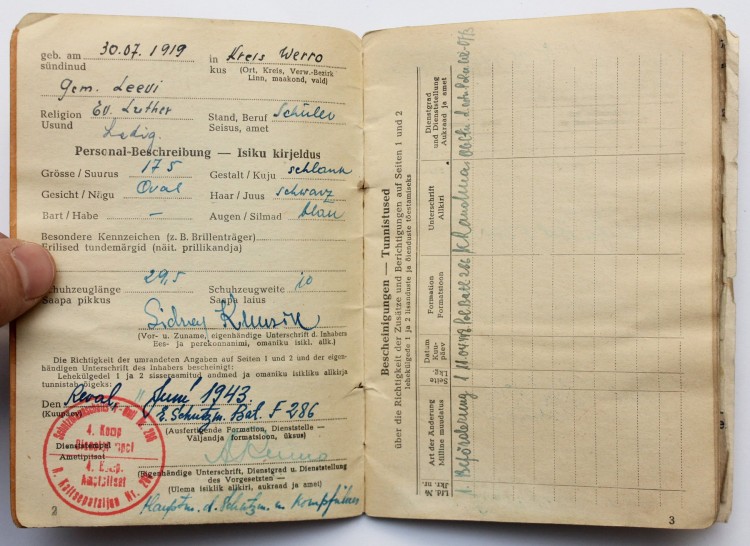 geb. am 30.07.1919 in Kreis Werro
sündinud kus (Ort, Kreis, Verw.-Bezirk
Linn, maakond, vald)
Gem. Leevi
Religion Ev. Luther Stand, Beruf Schüler
Usund Ledig. Seisus, amet
Personal-Beschreibung — Isiku kirjeldus
Grösse / Suurus 175 Gestalt / Kuju schlank
Gesicht / Nägu Oval Haar / Juus schwarz
Bart / Habe — Augen / Silmad blau
Besondere Kennzeichen (z. B. Brillenträger)
Erilised tundemärgid (näit. prillikandja)
29,5 10
Schuhzeuglänge Schuhzeugweite
Saapa pikkus Saapa laius
Sidney
(Vor- u. Zuname, eigenhändige Unterschrift d. Inhabers
Ees- ja perekonnanimi, omaniku isikl. alkk.)
Die Richtigkeit der umrandeten Angaben auf Seiten 1 und 2 und der eigen-
händigen Unterschrift des Inhabers bescheinigt:
Lehekülgedel 1 ja 2 sissegeraamitud andmed ja omaniku isikliku alkirja
tunnistab õigeks:
Den Reval, " Juni 1943.
(Kuupäev) E. Schutzm. Bat. F 286
(Ausfertigende Formation, Dienststelle —
Väljaandja formatsioon, üksus)
Dienststempel
Ametipitsat
4. Komp
Dienststempel
4. Komp.
Ametpitsat
(Eigenhändige Unterschrift, Dienstgrad u. Dienststellung
des Vorgesetzten —
(Ülema isiklik alkiri, aukraad ja amet)
Hauptm. d. Schutzm. u. Kompführer
2
Bescheinigungen — Tunnistused
über die Richtigkeit der Zusätze und Berichtigungen auf Seiten 1 und 2
lehekülgede 1 ja 2 lisanduste ja õienduste tõestamiseks
Lfd. №
Jkr. nr.
Art der Änderung
Milline muudatus
Seite
Lkg.
Datum
Kuu-
päev
Formation
Formatsioon
Unterschrift
Allkiri
Dienstgrad
und Dienststellung
Aukraad ja amet
1. Beförderung 1 Pol Batl 286
3